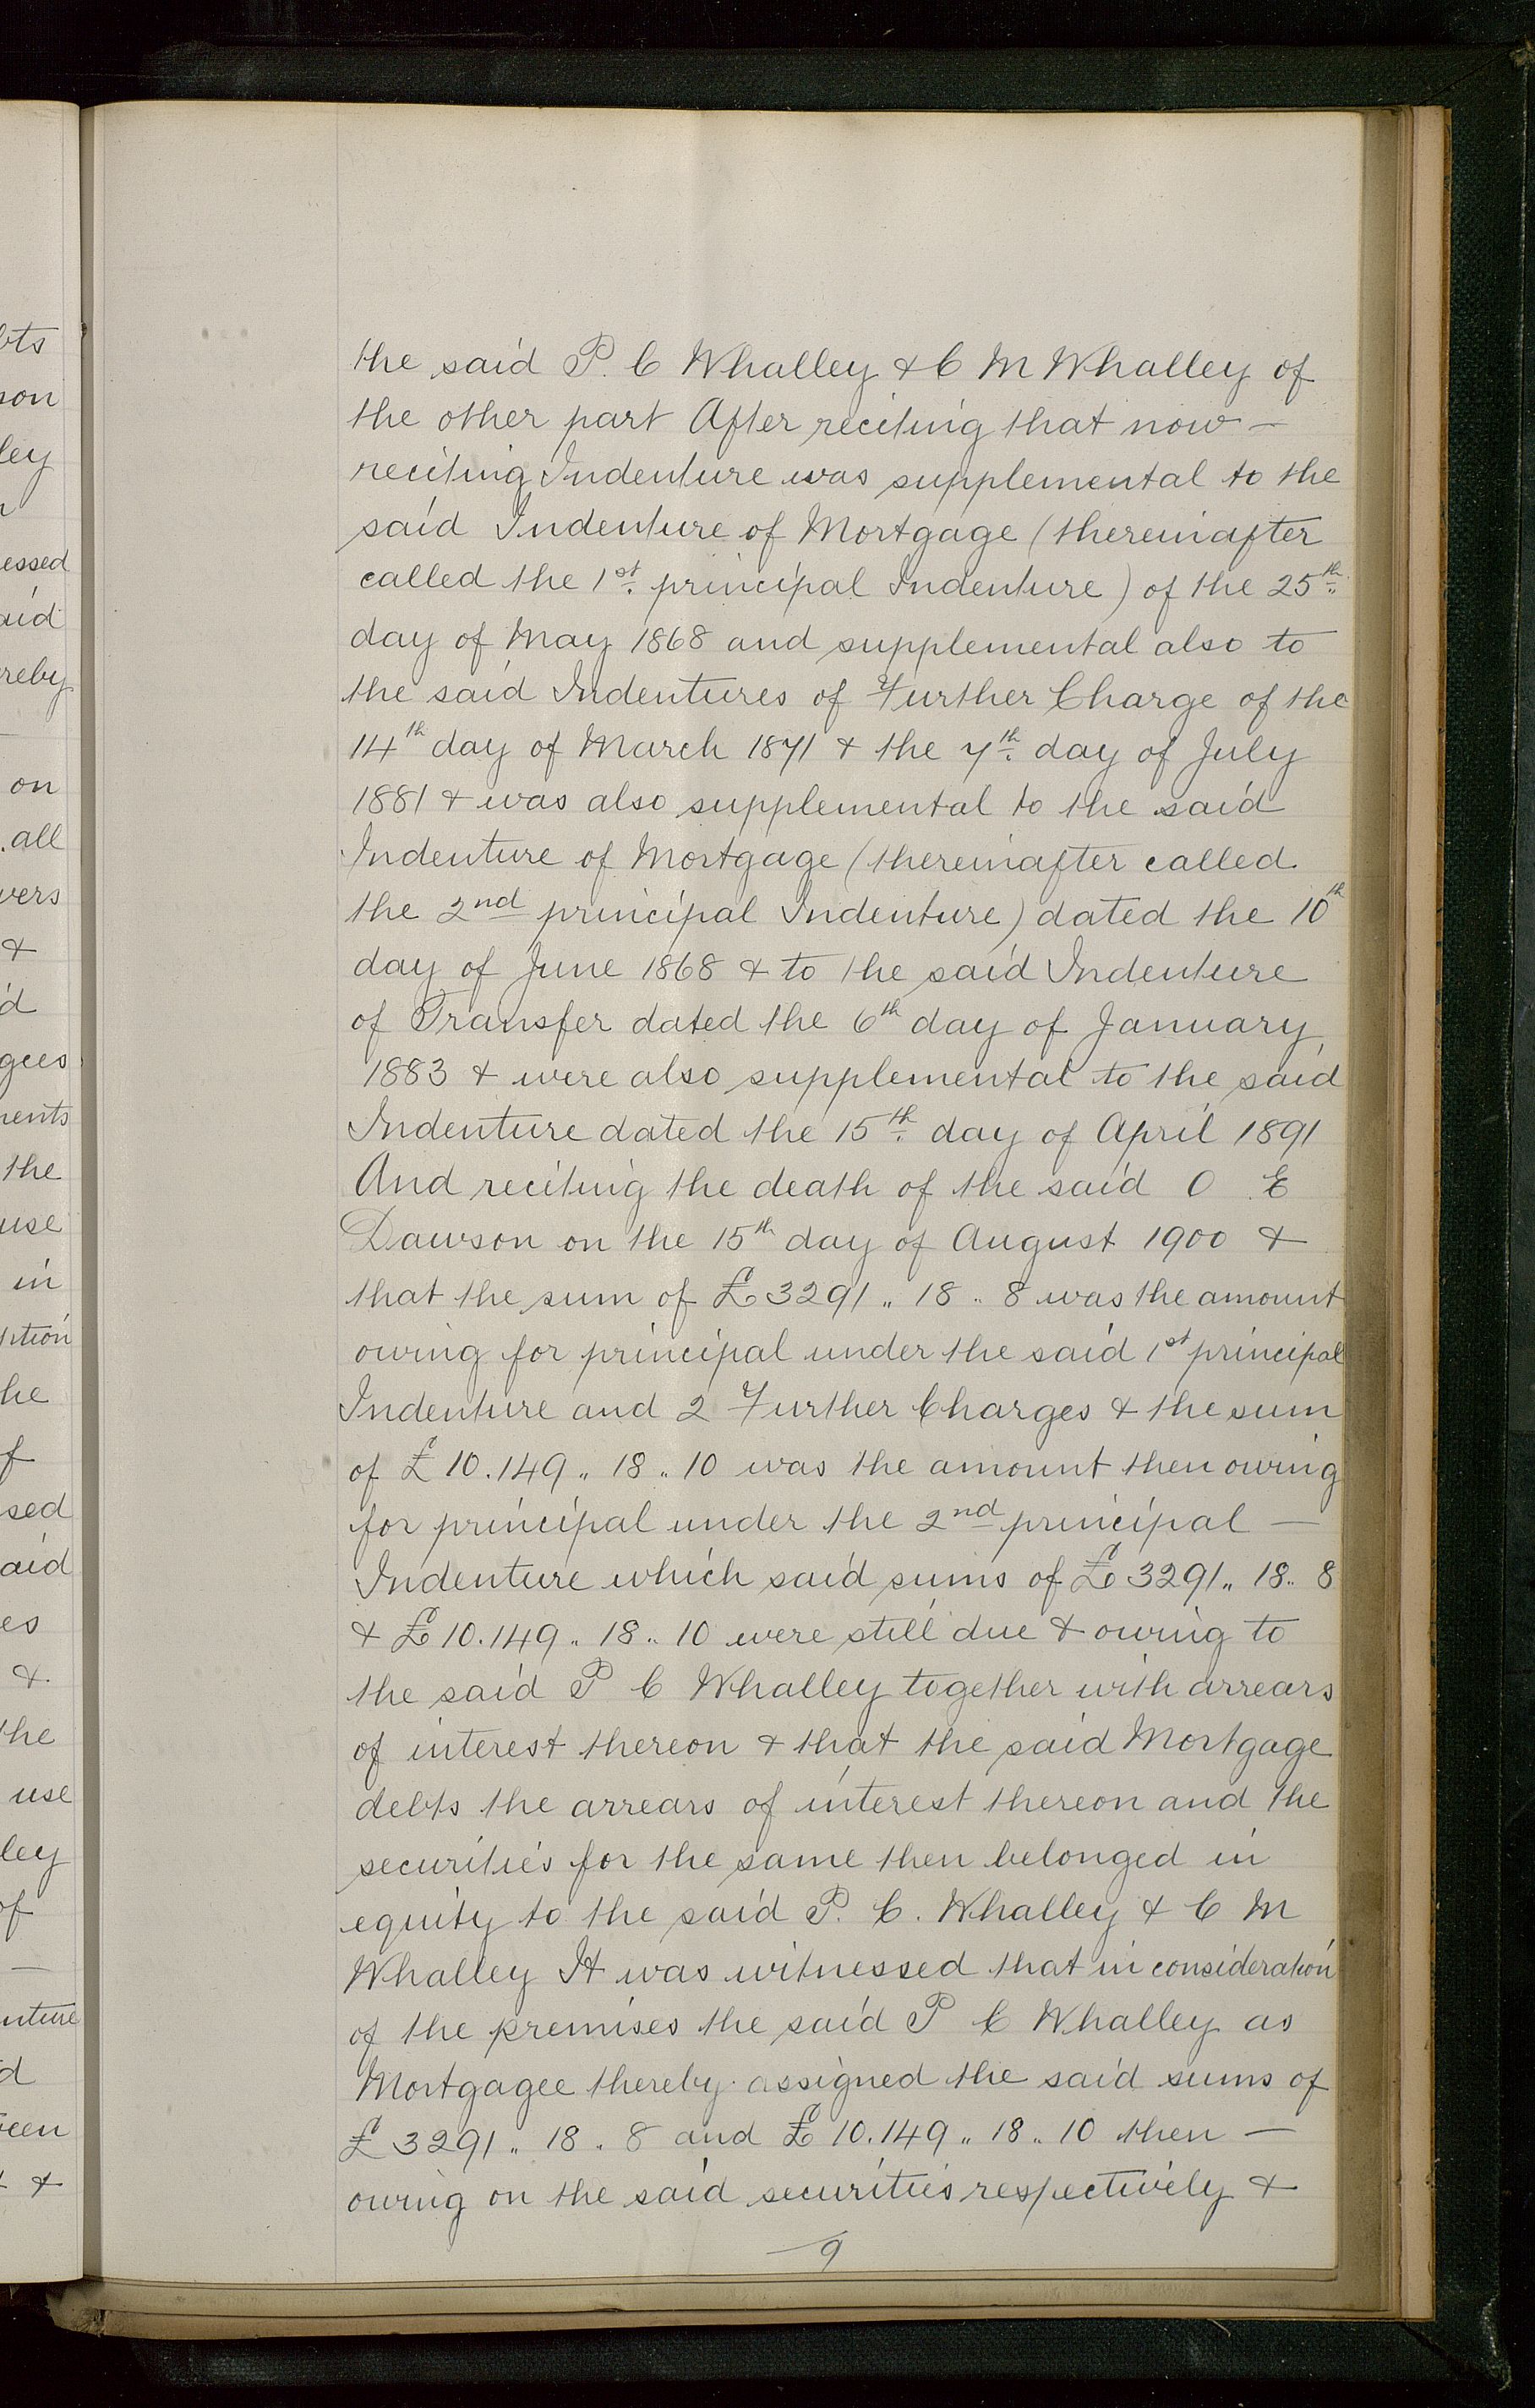 the said P. C Whalley & C M Whalley of
the other part After reciting that now —
reciting Indenture was supplemental to the
said Indenture of Mortgage (thereinafter
called the 1st principal Indenture) of the 25th
day of May 1868 and supplemental also to
the said Indentures of Further Charge of the
14th day of March 1871 & the 7th day of July
1881 & was also supplemental to the said
Indenture of Mortgage (thereinafter called
the 2nd principal Indenture) dated the 10th
day of June 1868 & to the said Indenture
of Transfer dated the 6th day of January
1883 & were also supplemental to the said
Indenture dated the 15th day of April 1891
And reciting the death of the said O E
Dawson on the 15th day of August 1900 &
that the sum of £3291 " 18 " 8 was the amount
owing for principal under the said 1st principal
Indenture and 2 Further Charges & the sum
of £10.149 " 18 " 10 was the amount then owing
for principal under the 2nd principal —
Indenture which said sums of £3291 " 18 " 8
& £10.149 " 18 " 10 were still due & owing to
the said P C Whalley together with arrears
of interest thereon & that the said Mortgage
debts the arrears of interest thereon and the
securities for the same then belonged in
equity to the said P. C. Whalley & C M
Whalley It was witnessed that in consideration
of the premises the said P C Whalley as
Mortgagee thereby assigned the said sums of
£3291 " 18 " 8 and £10.149 " 18 " 10 then —
owing on the said securities respectively &
9